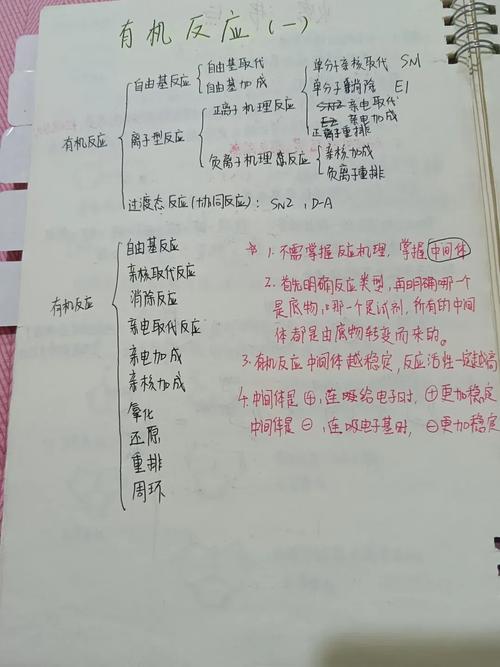 有机反应(一)
有机反应
自由基反应
自由基取代
自由基加成
离子型反应
正离子机理反应
单分子亲核取代 SN1
单分子消除 E1
亲电取代
亲电加成
正离子重排
负离子机理反应
亲核加成
负离子重排
过渡态反应(协同反应): SN2, D-A
有机反应
自由基反应
亲核取代反应
消除反应
亲电取代反应
亲电加成
亲核加成
氧化
还原
重排
周环
1. 不需掌握反应机理, 掌握中间体
2. 首先明确反应类型, 再明确哪一个
是底物, 哪一个是试剂, 所有的中间
体都是由底物转变而来的。
3. 有机反应中间体越稳定, 反应活性一定越高
4. 中间体是⊕, 连吸给电子时, ⊕更加稳定
中间体是⊖, 连吸电子基时, ⊖更加稳定